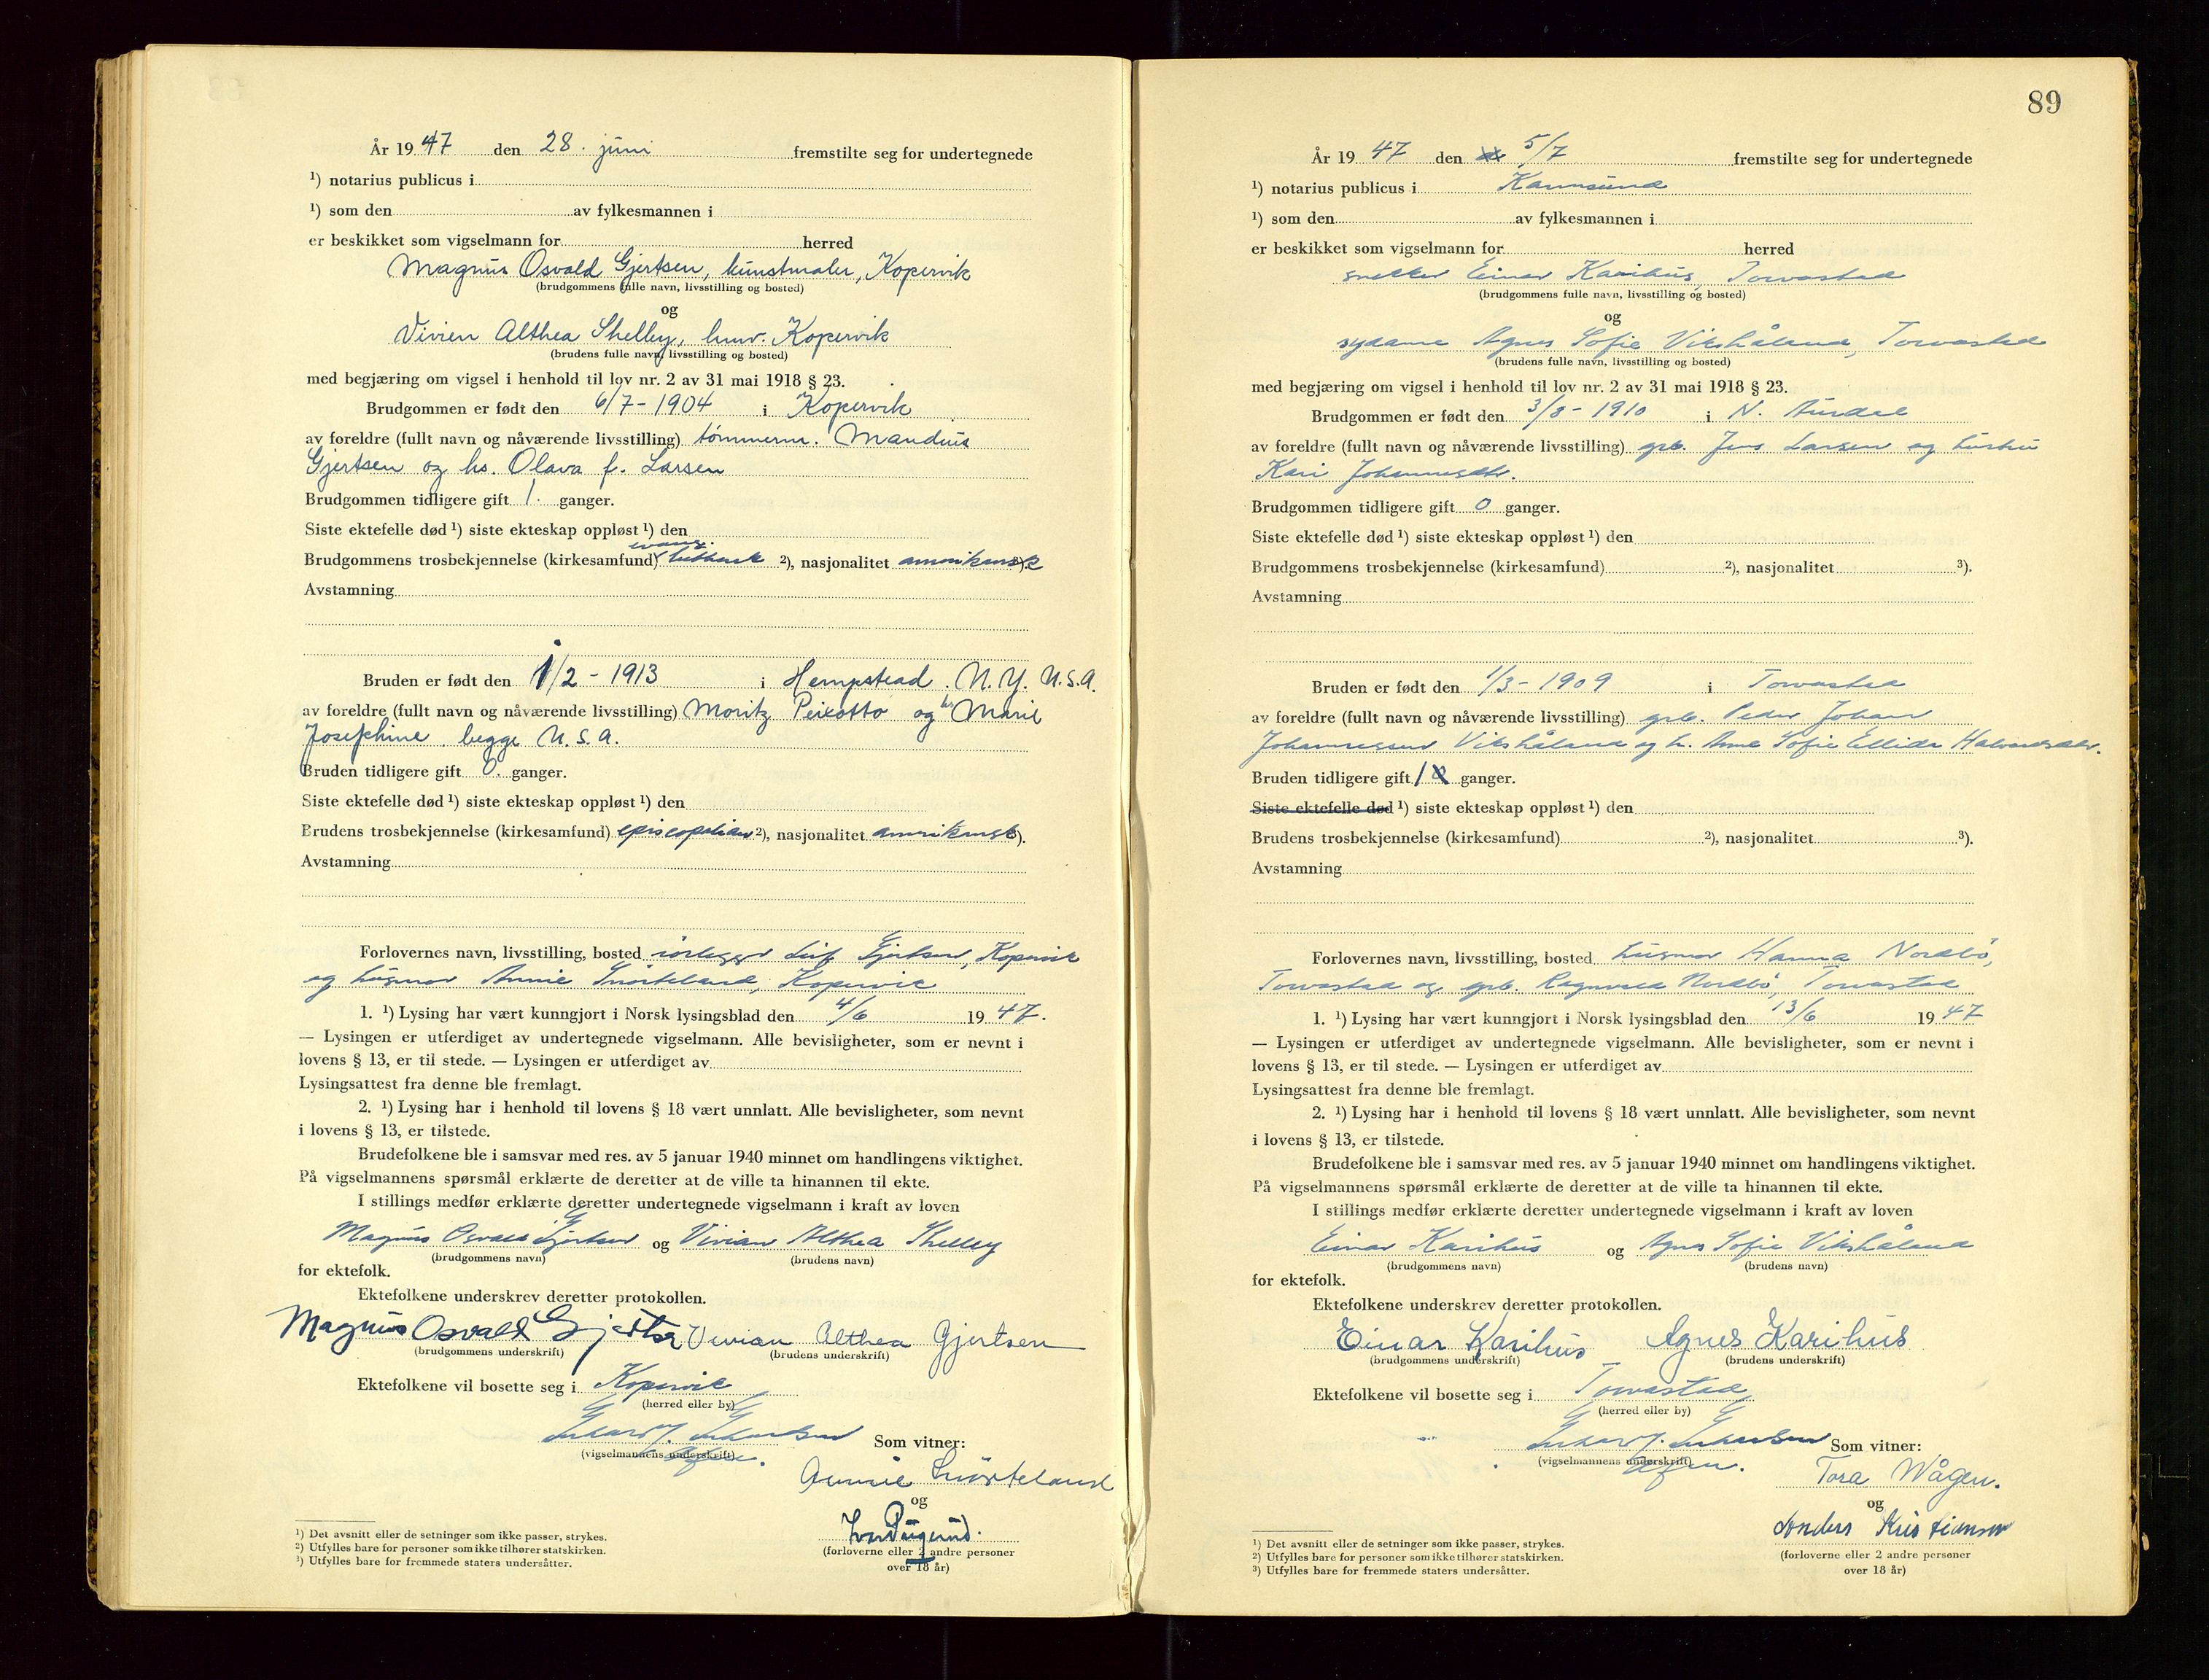 År 1947 den 28. juni fremstilte seg for undertegnede
¹) notarius publicus i
¹) som den av fylkesmannen i
er beskikket som vigselmann for herred
Magnus Osvald Gjertsen, kunstmaler, Kopervik
(brudgommens fulle navn, livsstilling og bosted)
og
Vivien Althea Shelley, husv. Kopervik
(brudens fulle navn, livsstilling og bosted)
med begjæring om vigsel i henhold til lov nr. 2 av 31 mai 1918 § 23.
Brudgommen er født den 6/7 - 1904 i Kopervik
av foreldre (fullt navn og nåværende livsstilling) tømmerm. Mandius
Gjertsen og hs. Olava f. Larsen
Brudgommen tidligere gift 1. ganger.
Siste ektefelle død ¹) siste ekteskap oppløst ¹) den
Brudgommens trosbekjennelse (kirkesamfund) evang. luthersk ²), nasjonalitet amerikansk ³).
Avstamning
Bruden er født den 1/2 - 1913 i Hempstead. N.Y. U.S.A.
av foreldre (fullt navn og nåværende livsstilling) Moritz Peixotto og hs Marie
Josephine. begge U.S.A.
Bruden tidligere gift 0. ganger.
Siste ektefelle død ¹) siste ekteskap oppløst ¹) den
Brudens trosbekjennelse (kirkesamfund) episcopalian ²), nasjonalitet amerikansk ³).
Avstamning
Forlovernes navn, livsstilling, bosted rørlegger Leif Gjertsen, Kopervik
og husmor Annie Snörteland, Kopervik
1. ¹) Lysing har vært kunngjort i Norsk lysingsblad den 4/6 1947.
— Lysingen er utferdiget av undertegnede vigselmann. Alle bevisligheter, som er nevnt i
lovens § 13, er til stede. — Lysingen er utferdiget av
Lysingsattest fra denne ble fremlagt.
2. ¹) Lysing har i henhold til lovens § 18 vært unnlatt. Alle bevisligheter, som nevnt
i lovens § 13, er tilstede.
Brudefolkene ble i samsvar med res. av 5 januar 1940 minnet om handlingens viktighet.
På vigselmannens spørsmål erklærte de deretter at de ville ta hinannen til ekte.
I stillings medfør erklærte deretter undertegnede vigselmann i kraft av loven
Magnus Osvald Gjertsen og Vivian Althea Shelley
(brudgommens navn) (brudens navn)
for ektefolk.
Ektefolkene underskrev deretter protokollen.
Magnus Osvald Gjertsen Vivian Althea Gjertsen
(brudgommens underskrift) (brudens underskrift)
Ektefolkene vil bosette seg i Kopervik
(herred eller by)
(vigselmannens underskrift)
Som vitner:
Annie Snörteland
og
(forloverne eller 2 andre personer
over 18 år)
¹) Det avsnitt eller de setninger som ikke passer, strykes.
²) Utfylles bare for personer som ikke tilhører statskirken.
³) Utfylles bare for fremmede staters undersåtter.
89
År 1947 den 5/7 fremstilte seg for undertegnede
¹) notarius publicus i Karmsund
¹) som den av fylkesmannen i
er beskikket som vigselmann for herred
snekker Einar Karihus, Torvastad
(brudgommens fulle navn, livsstilling og bosted)
og
sydame Agnes Sofie Vikshåland, Torvastad
(brudens fulle navn, livsstilling og bosted)
med begjæring om vigsel i henhold til lov nr. 2 av 31 mai 1918 § 23.
Brudgommen er født den 3/8 - 1910 i N. Aurdal
av foreldre (fullt navn og nåværende livsstilling) grb. Jens Larsen og hustru
Kari Johannesdtr.
Brudgommen tidligere gift 0 ganger.
Siste ektefelle død ¹) siste ekteskap oppløst ¹) den
Brudgommens trosbekjennelse (kirkesamfund) ²), nasjonalitet ³).
Avstamning
Bruden er født den 1/3 - 1909 i Torvastad
av foreldre (fullt navn og nåværende livsstilling) grb. Peder Johan
Johannessen Vikshåland og h. Anne Sofie Ellida Halvorsdtr.
Bruden tidligere gift 1 ganger.
Siste ektefelle død ¹) siste ekteskap oppløst ¹) den
Brudens trosbekjennelse (kirkesamfund) ²), nasjonalitet ³).
Avstamning
Forlovernes navn, livsstilling, bosted husmor Hanna Nordbö,
Torvastad og grb. Ragnvald Nordbö, Torvastad
1. ¹) Lysing har vært kunngjort i Norsk lysingsblad den 13/6 1947
— Lysingen er utferdiget av undertegnede vigselmann. Alle bevisligheter, som er nevnt i
lovens § 13, er til stede. — Lysingen er utferdiget av
Lysingsattest fra denne ble fremlagt.
2. ¹) Lysing har i henhold til lovens § 18 vært unnlatt. Alle bevisligheter, som nevnt
i lovens § 13, er tilstede.
Brudefolkene ble i samsvar med res. av 5 januar 1940 minnet om handlingens viktighet.
På vigselmannens spørsmål erklærte de deretter at de ville ta hinannen til ekte.
I stillings medfør erklærte deretter undertegnede vigselmann i kraft av loven
Einar Karihus og Agnes Sofie Vikshåland
(brudgommens navn) (brudens navn)
for ektefolk.
Ektefolkene underskrev deretter protokollen.
Einar Karihus Agnes Karihus
(brudgommens underskrift) (brudens underskrift)
Ektefolkene vil bosette seg i Torvastad
(herred eller by)
(vigselmannens underskrift)
Som vitner:
Tora Wågen.
og
Anders Kristiansen
(forloverne eller 2 andre personer
over 18 år)
¹) Det avsnitt eller de setninger som ikke passer, strykes.
²) Utfylles bare for personer som ikke tilhører statskirken.
³) Utfylles bare for fremmede staters undersåtter.